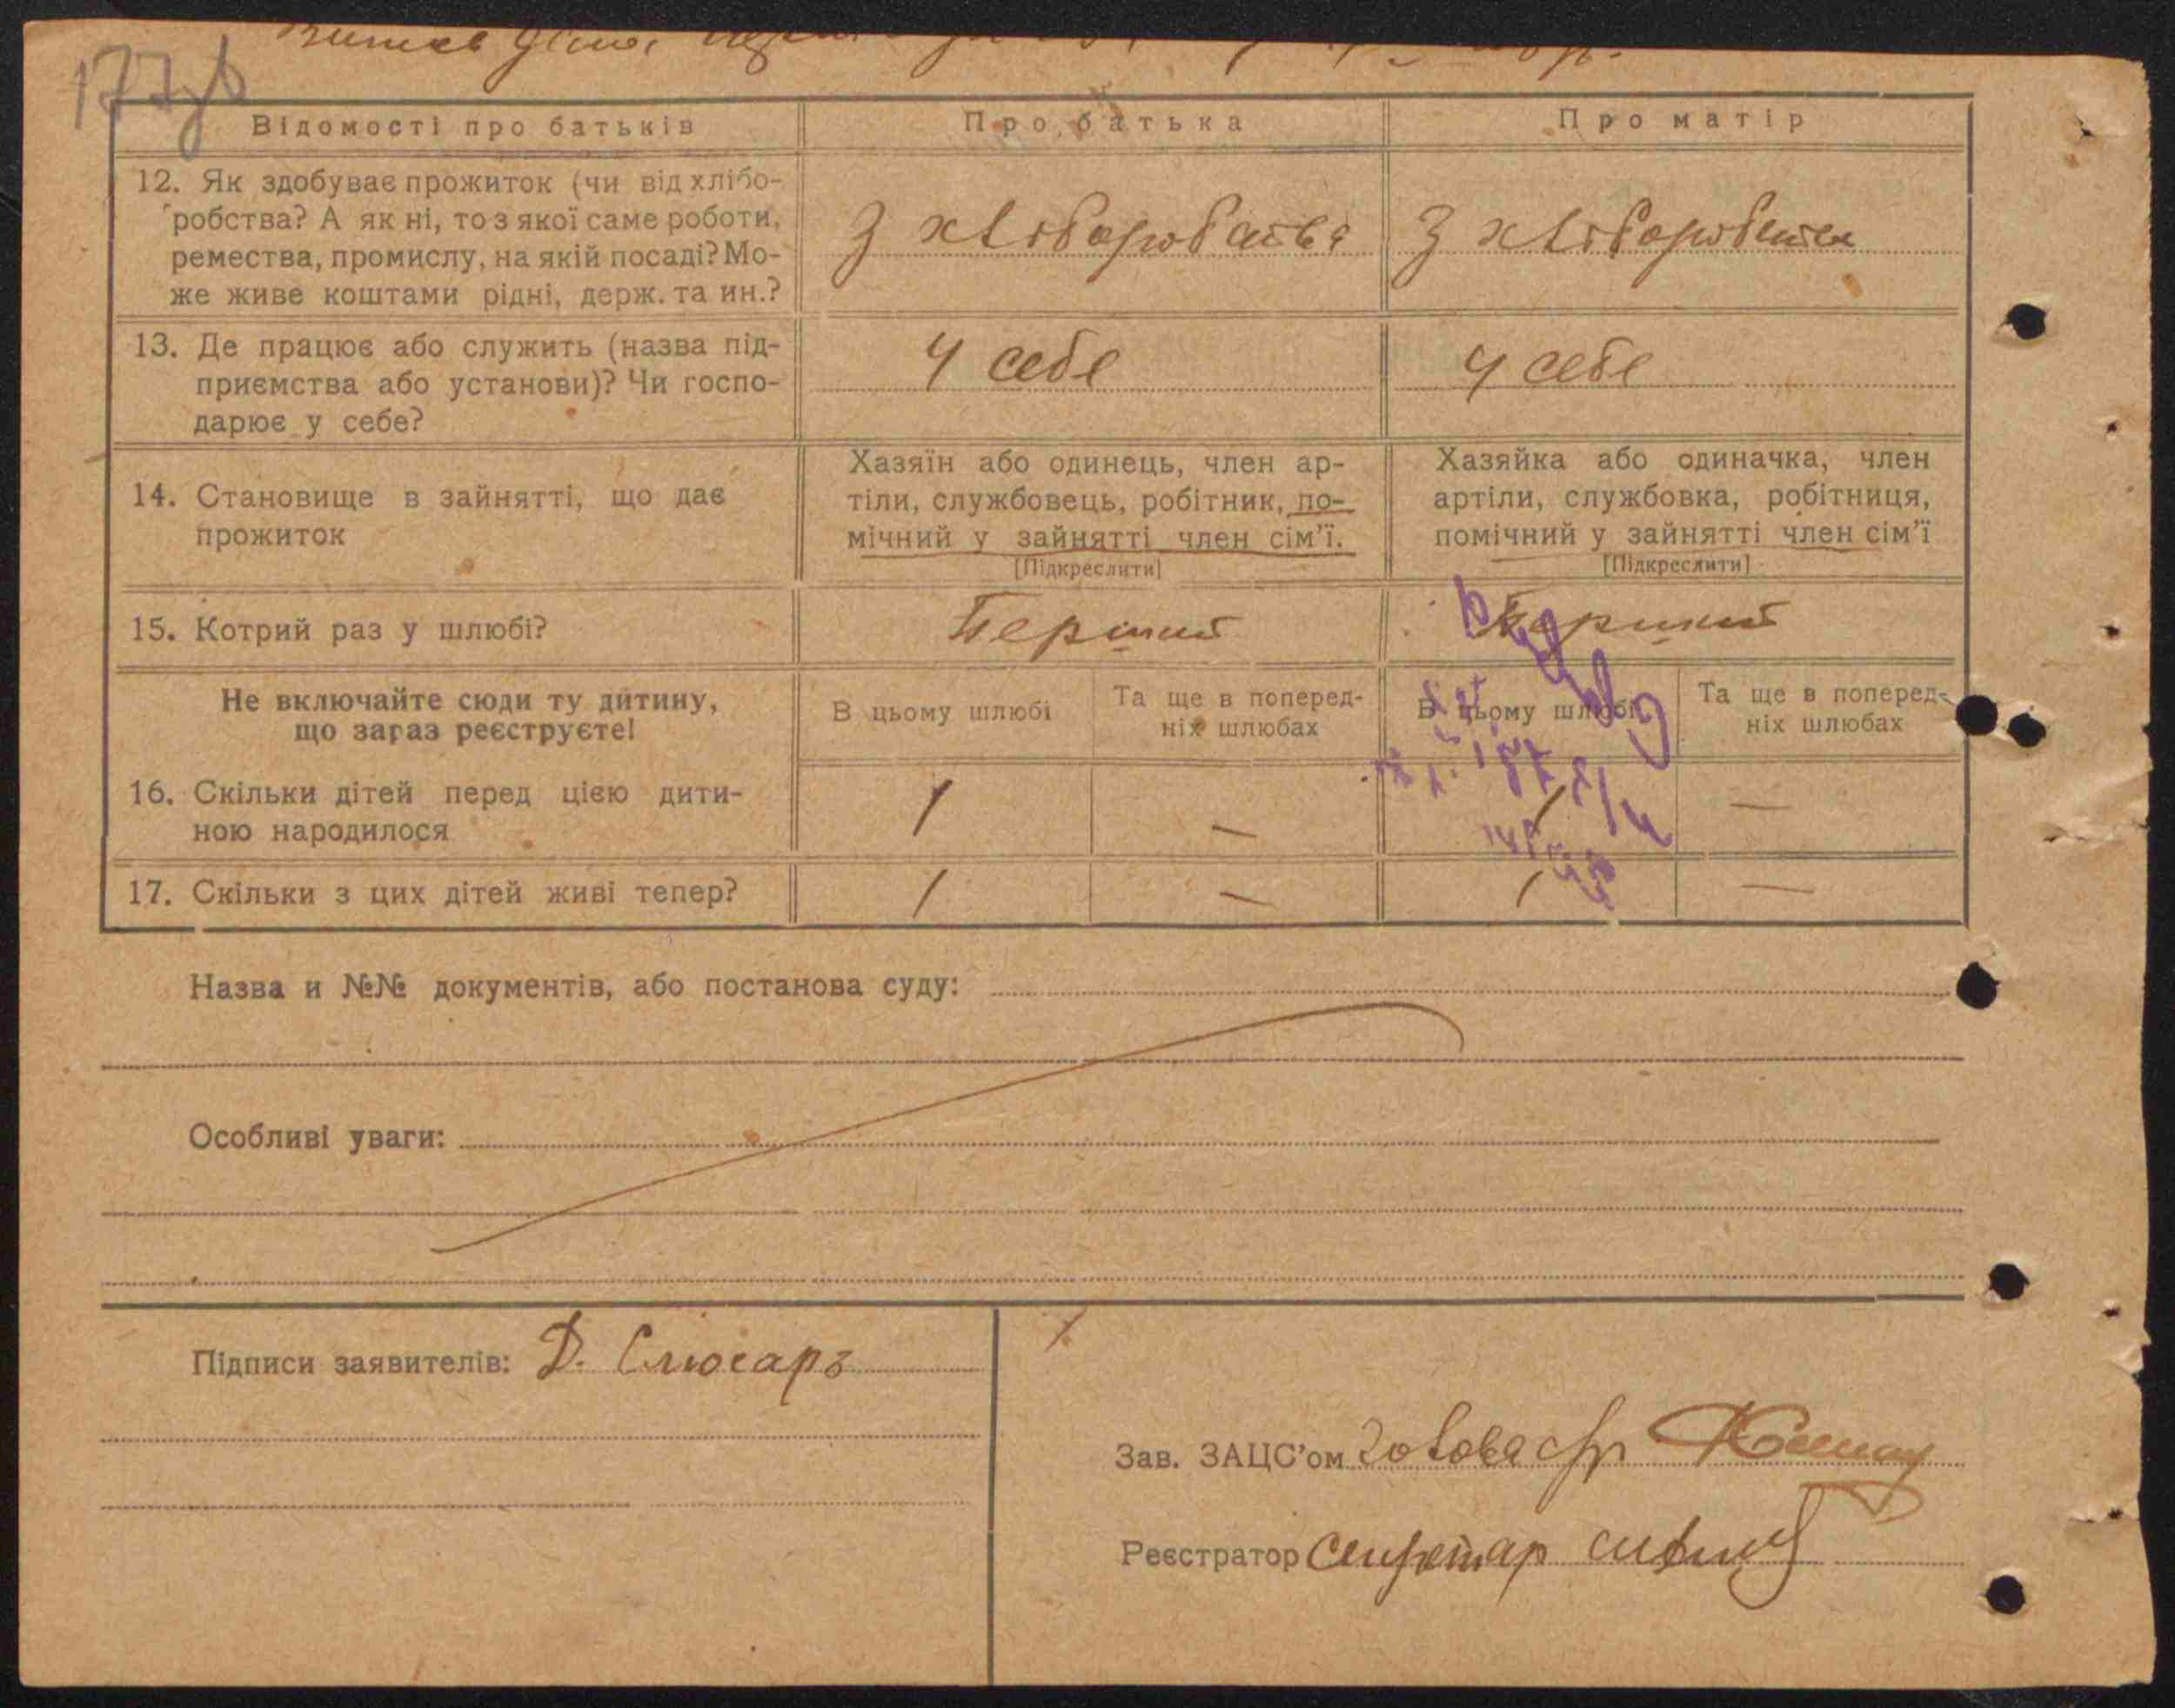 177зв
Відомості про батьків
Про батька
Про матір
12. Як здобуває прожиток (чи від хлібо-
робства? А як ні, то з якої саме роботи,
ремества, промислу, на якій посаді? Мо-
же живе коштами рідні, держ. та ин.?
З хліборобства
З хліборобства
13. Де працює або служить (назва під-
приємства або установи)? Чи госпо-
дарює у себе?
У себе
У себе
14. Становище в зайнятті, що дає
прожиток
Хазяїн або одинець, член ар-
тіли, службовець, робітник, по-
мічний у зайнятті член сім'ї.
[Підкреслити]
Хазяйка або одиначка, член
артіли, службовка, робітниця,
помічний у зайнятті член сім'ї
[Підкреслити]
15. Котрий раз у шлюбі?
Перший
Перший
Не включайте сюди ту дитину,
що зараз реєструєте!
В цьому шлюбі
Та ще в поперед-
ніх шлюбах
В цьому шлюбі
Та ще в поперед-
ніх шлюбах
16. Скільки дітей перед цією дити-
ною народилося
1
—
1
—
17. Скільки з цих дітей живі тепер?
1
—
1
—
Назва и №№ документів, або постанова суду:
Особливі уваги:
Підписи заявителів: Д. Слюсаръ
Зав. ЗАЦС'ом Голова с/р
Реєстратор Секретар